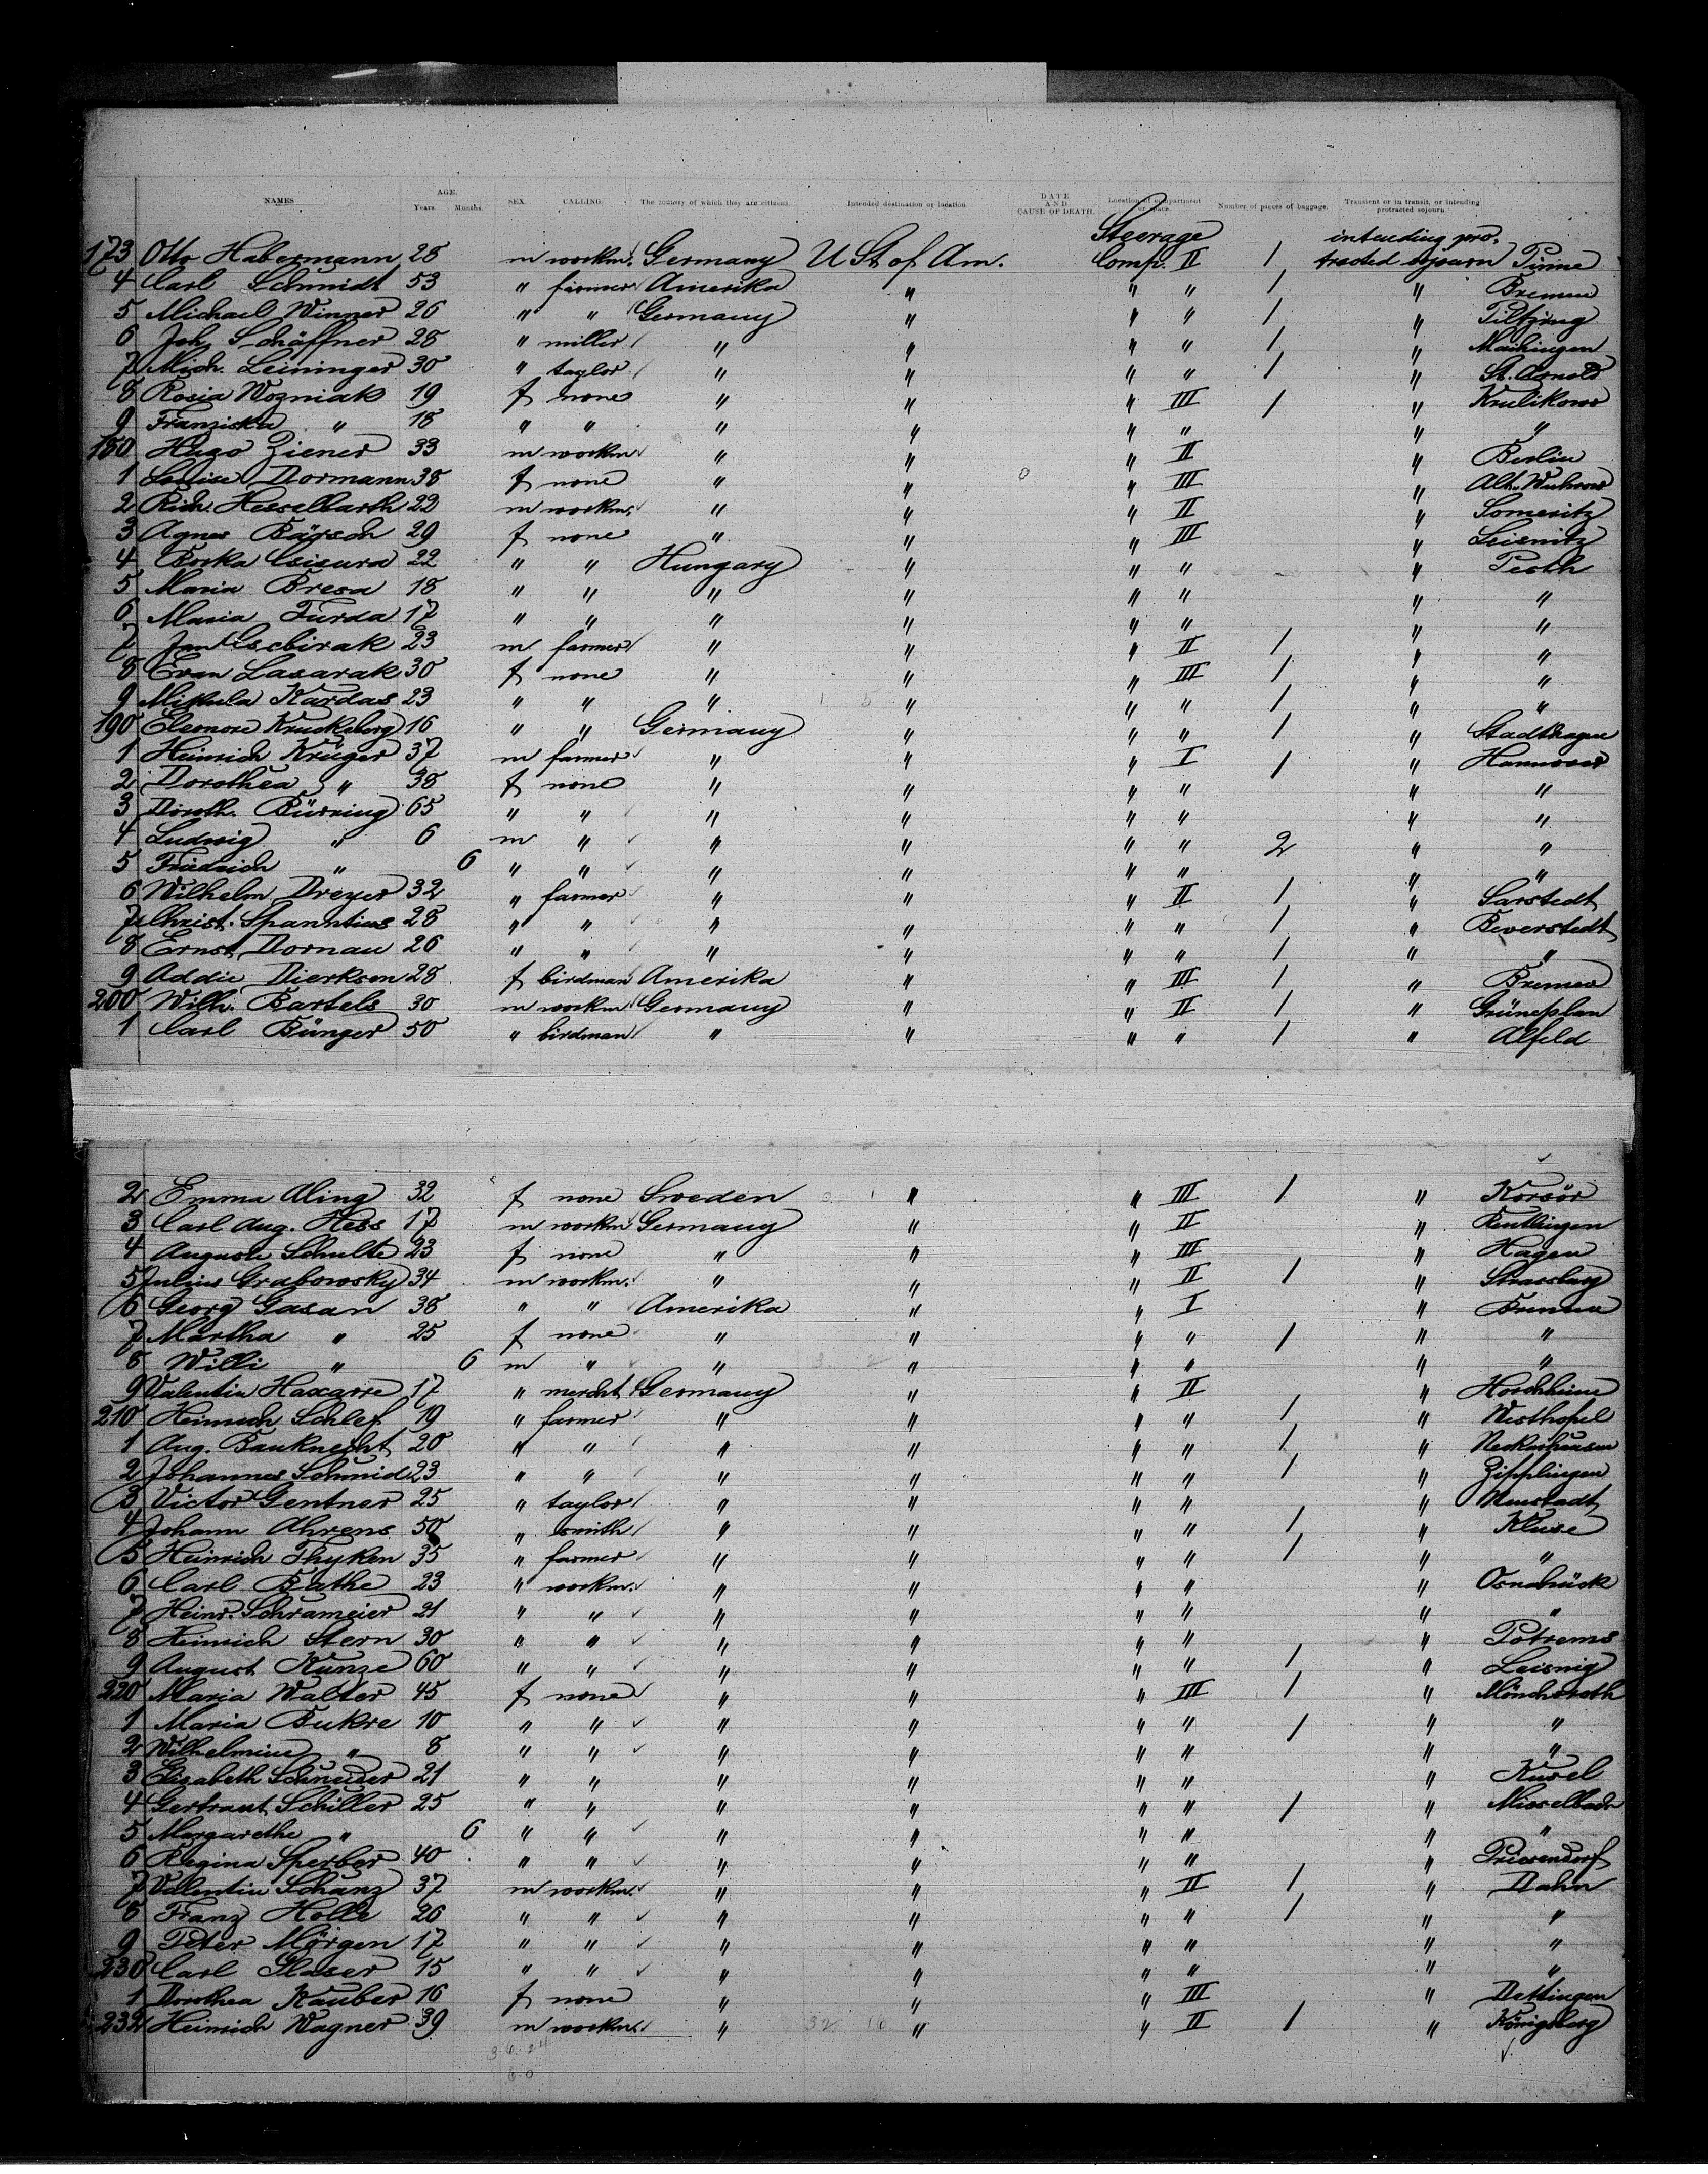 NAMES AGE. Years. Months. SEX. CALLING. The country of which they are citizens. Intended destination or location. DATE AND CAUSE OF DEATH. Location of compartment or space. Number of pieces of baggage. Transient or in transit, or intending protracted sojourn
Steerage intending pro-
173 Otto Habermann 28 m workm. Germany U St of Am. Comp. II 1 tracted sojourn Pinne
4 Carl Schmidt 53 " farmer Amerika " " " 1 " Bremen
5 Michael Winner 26 " " Germany " " " 1 "
6 Joh. Schäffner 28 " miller " " " " 1 " Maihingen
7 Mich. Leininger 30 " taylor " " " " 1 " St. Arnold
8 Rosia Wozniak 19 f none " " " III 1 " Krulikowo
9 Franziska " 18 " " " " " " " "
180 Hugo Ziener 33 m workm " " " II " Berlin
1 Louise Dormann 38 f none " " " III " Alt. Wuhrow
2 Rich. Hesselbarth 22 m workm. " " " II " Someritz
3 Agnes Bärsch 29 f none " " " III " Leisnitz
4 Borka Csisura 22 " " Hungary " " " " Pesth
5 Maria Bresa 18 " " " " " " " "
6 Maria Furda 17 " " " " " " " "
7 Jan Cscbirak 23 m farmer " " " II 1 " "
8 Evan Lasarak 30 f none " " " III 1 " "
9 Mikula Kardas 23 " " " " " " 1 " "
190 Eleonore Kruckeberg 16 " " Germany " " " 1 " Stadthagen
1 Heinrich Krüger 37 m farmer " " " I 1 " Hannover
2 Dorothea " 38 f none " " " " " "
3 Doroth. Bürring 65 " " " " " " " "
4 Ludwig " 6 m " " " " " 2 " "
5 Friedrich " 6 " " " " " " " "
6 Wilhelm Dreyer 32 " farmer " " " II 1 " Sarstedt
7 Christ. Spanntius 28 " " " " " " 1 " Beverstedt
8 Ernst Dornau 26 " " " " " " 1 " "
9 Addie Dierksen 28 f birdman Amerika " " III 1 " Bremen
200 Wilh. Bartels 30 m workm Germany " " II 1 " Grüneplan
1 Carl Bünger 50 " birdman " " " " 1 " Alfeld
2 Emma Aling 32 f none Sweden " " III 1 " Korsör
3 Carl Aug. Hess 17 m workm Germany " " II " Reutlingen
4 Auguste Schulte 23 f none " " " III " Hagen
5 Julius Grabowsky 34 m workm. " " " II 1 " Strassburg
6 Georg Gasan 38 " " Amerika " " I " Bremen
7 Martha " 25 f none " " " " 1 " "
8 Willi " 6 m " " " " " " "
9 Valentin Haxarre 17 " mercht Germany " " II " Horchheim
210 Heinrich Schlef 19 " farmer " " " " 1 " Westhofel
1 Aug. Bauknecht 20 " " " " " " 1 " Neckarhausen
2 Johannes Schmid 23 " " " " " " 1 " Zipplingen
3 Victor Gentner 25 " taylor " " " " " Neustadt
4 Johann Ahrens 50 " smith " " " " 1 " Kluse
5 Heinrich Thyken 35 " farmer " " " " 1 " "
6 Carl Bathe 23 " workm. " " " " " Osnabrück
7 Heinr. Schrameier 21 " " " " " " " "
8 Heinrich Stern 30 " " " " " " " Potrems
9 August Kunze 60 " " " " " " 1 " Leisnig
220 Maria Walter 45 f none " " " III 1 " Mönchsroth
1 Maria Bukre 10 " " " " " " 1 " "
2 Wilhelmine " 8 " " " " " " " "
3 Elisabeth Schneider 21 " " " " " " " Kusel
4 Gertraut Schiller 25 " " " " " " 1 " Misselbach
5 Margarethe " 6 " " " " " " " "
6 Regina Sperber 40 " " " " " " " Priesendorf
7 Valentin Schanz 37 m workm. " " " II 1 " Dahn
8 Franz Holle 26 " " " " " " 1 " "
9 Peter Mörgen 17 " " " " " " " "
230 Carl Glaser 15 " " " " " " " "
1 Dorothea Kauber 16 f none " " " III " Dettingen
232 Heinrich Wagner 39 m workm. " 32 16 " " II 1 " Königsberg